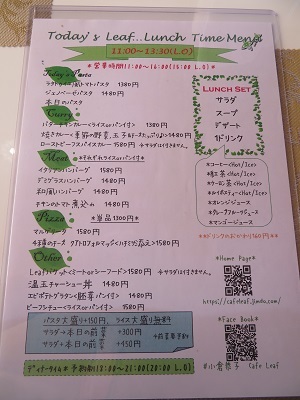 Today's Leaf...Lunch Time Menu
11:00~13:30(L.O)
*営業時間11:00~16:00(15:00 L.O)
Today's Pasta
1380円
ジェノベーゼパスタ 1480円
本日のパスタ
Curry
バターチキンカレー(ライスorパン付)
焼きカレー
ローストビーフスパイスカレー 1580円
Meat *それぞれライスorパン付*
イタリアンハンバーグ 1580円
デミグラスハンバーグ 1480円
和風ハンバーグ 1480円
チキンのトマト煮込み 1480円
Pizza *単品1300円*
マルゲリータ 1580円
4種のチーズ
Other
1580円 *サラダは付きません。
温玉チャーシュー丼 1480円
エビポテトグラタン(豚菜パン付)1480円
ビーフシチュー(ライスorパン付) 1580円
パスタ大盛り+150円、ライス大盛り無料
サラダ→本日の前菜 +300円
サラダ+本日の前菜 +450円
ディナータイム*予約制18:00~21:00(20:00 L.O)
LUNCH SET
サラダ
スープ
デザート
1ドリンク
*コーヒー(Hot/Ice)
*紅茶(Hot/Ice)
*ウーロン茶(Hot/Ice)
*ルイボスティー(Hot/Ice)
*オレンジジュース
*グレープフルーツジュース
*マンゴージュース
*ドリンクのおかわり160円**
*Home Page*
https://cafeleaf.jimdo.com/
*Face Book*
Cafe Leaf